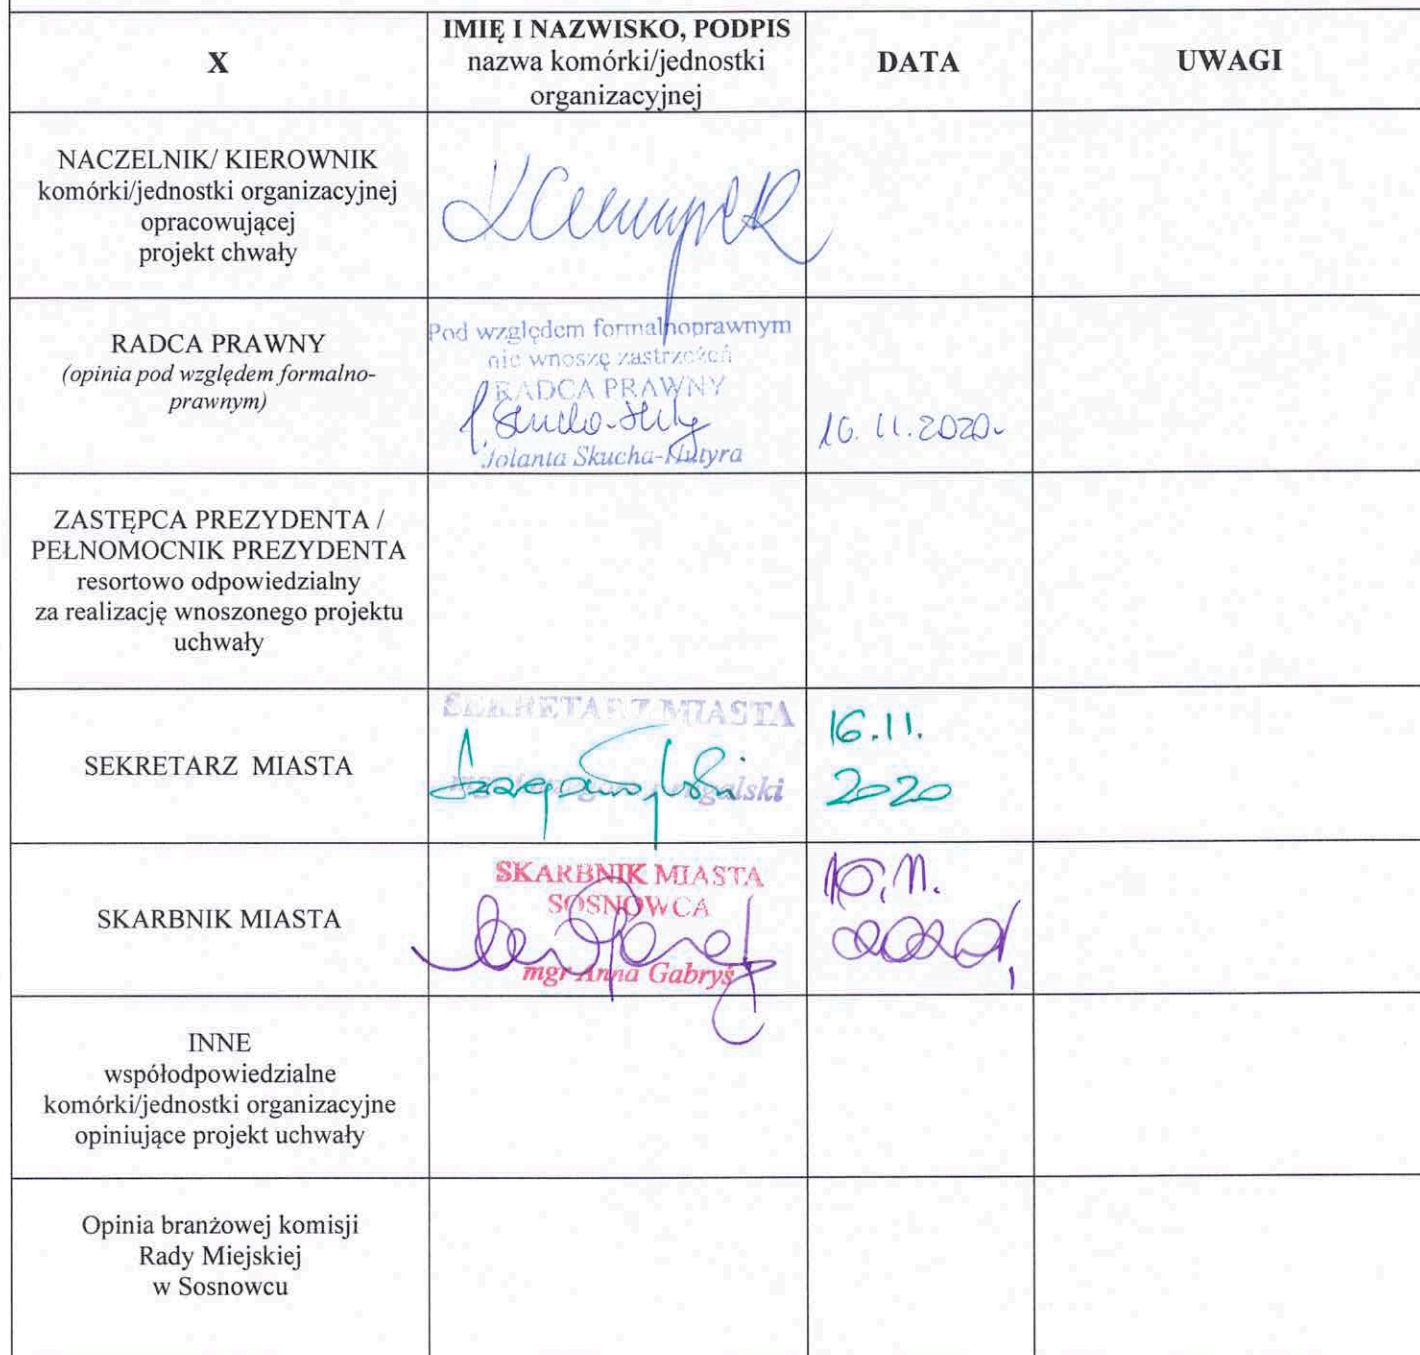 X
IMIĘ I NAZWISKO, PODPIS
nazwa komórki/jednostki
organizacyjnej
DATA
UWAGI
NACZELNIK/ KIEROWNIK
komórki/jednostki organizacyjnej
opracowującej
projekt chwały
RADCA PRAWNY
(opinia pod względem formalno-
prawnym)
Pod względem formalnoprawnym
nie wnoszę zastrzeżeń
RADCA PRAWNY
Jolanta Skucha-Kutyra
16.11.2020.
ZASTĘPCA PREZYDENTA /
PEŁNOMOCNIK PREZYDENTA
resortowo odpowiedzialny
za realizację wnoszonego projektu
uchwały
SEKRETARZ MIASTA
SEKRETARZ MIASTA
mgr
16.11.
2020
SKARBNIK MIASTA
SKARBNIK MIASTA
SOSNOWCA
mgr Anna Gabryś
INNE
współodpowiedzialne
komórki/jednostki organizacyjne
opiniujące projekt uchwały
Opinia branżowej komisji
Rady Miejskiej
w Sosnowcu